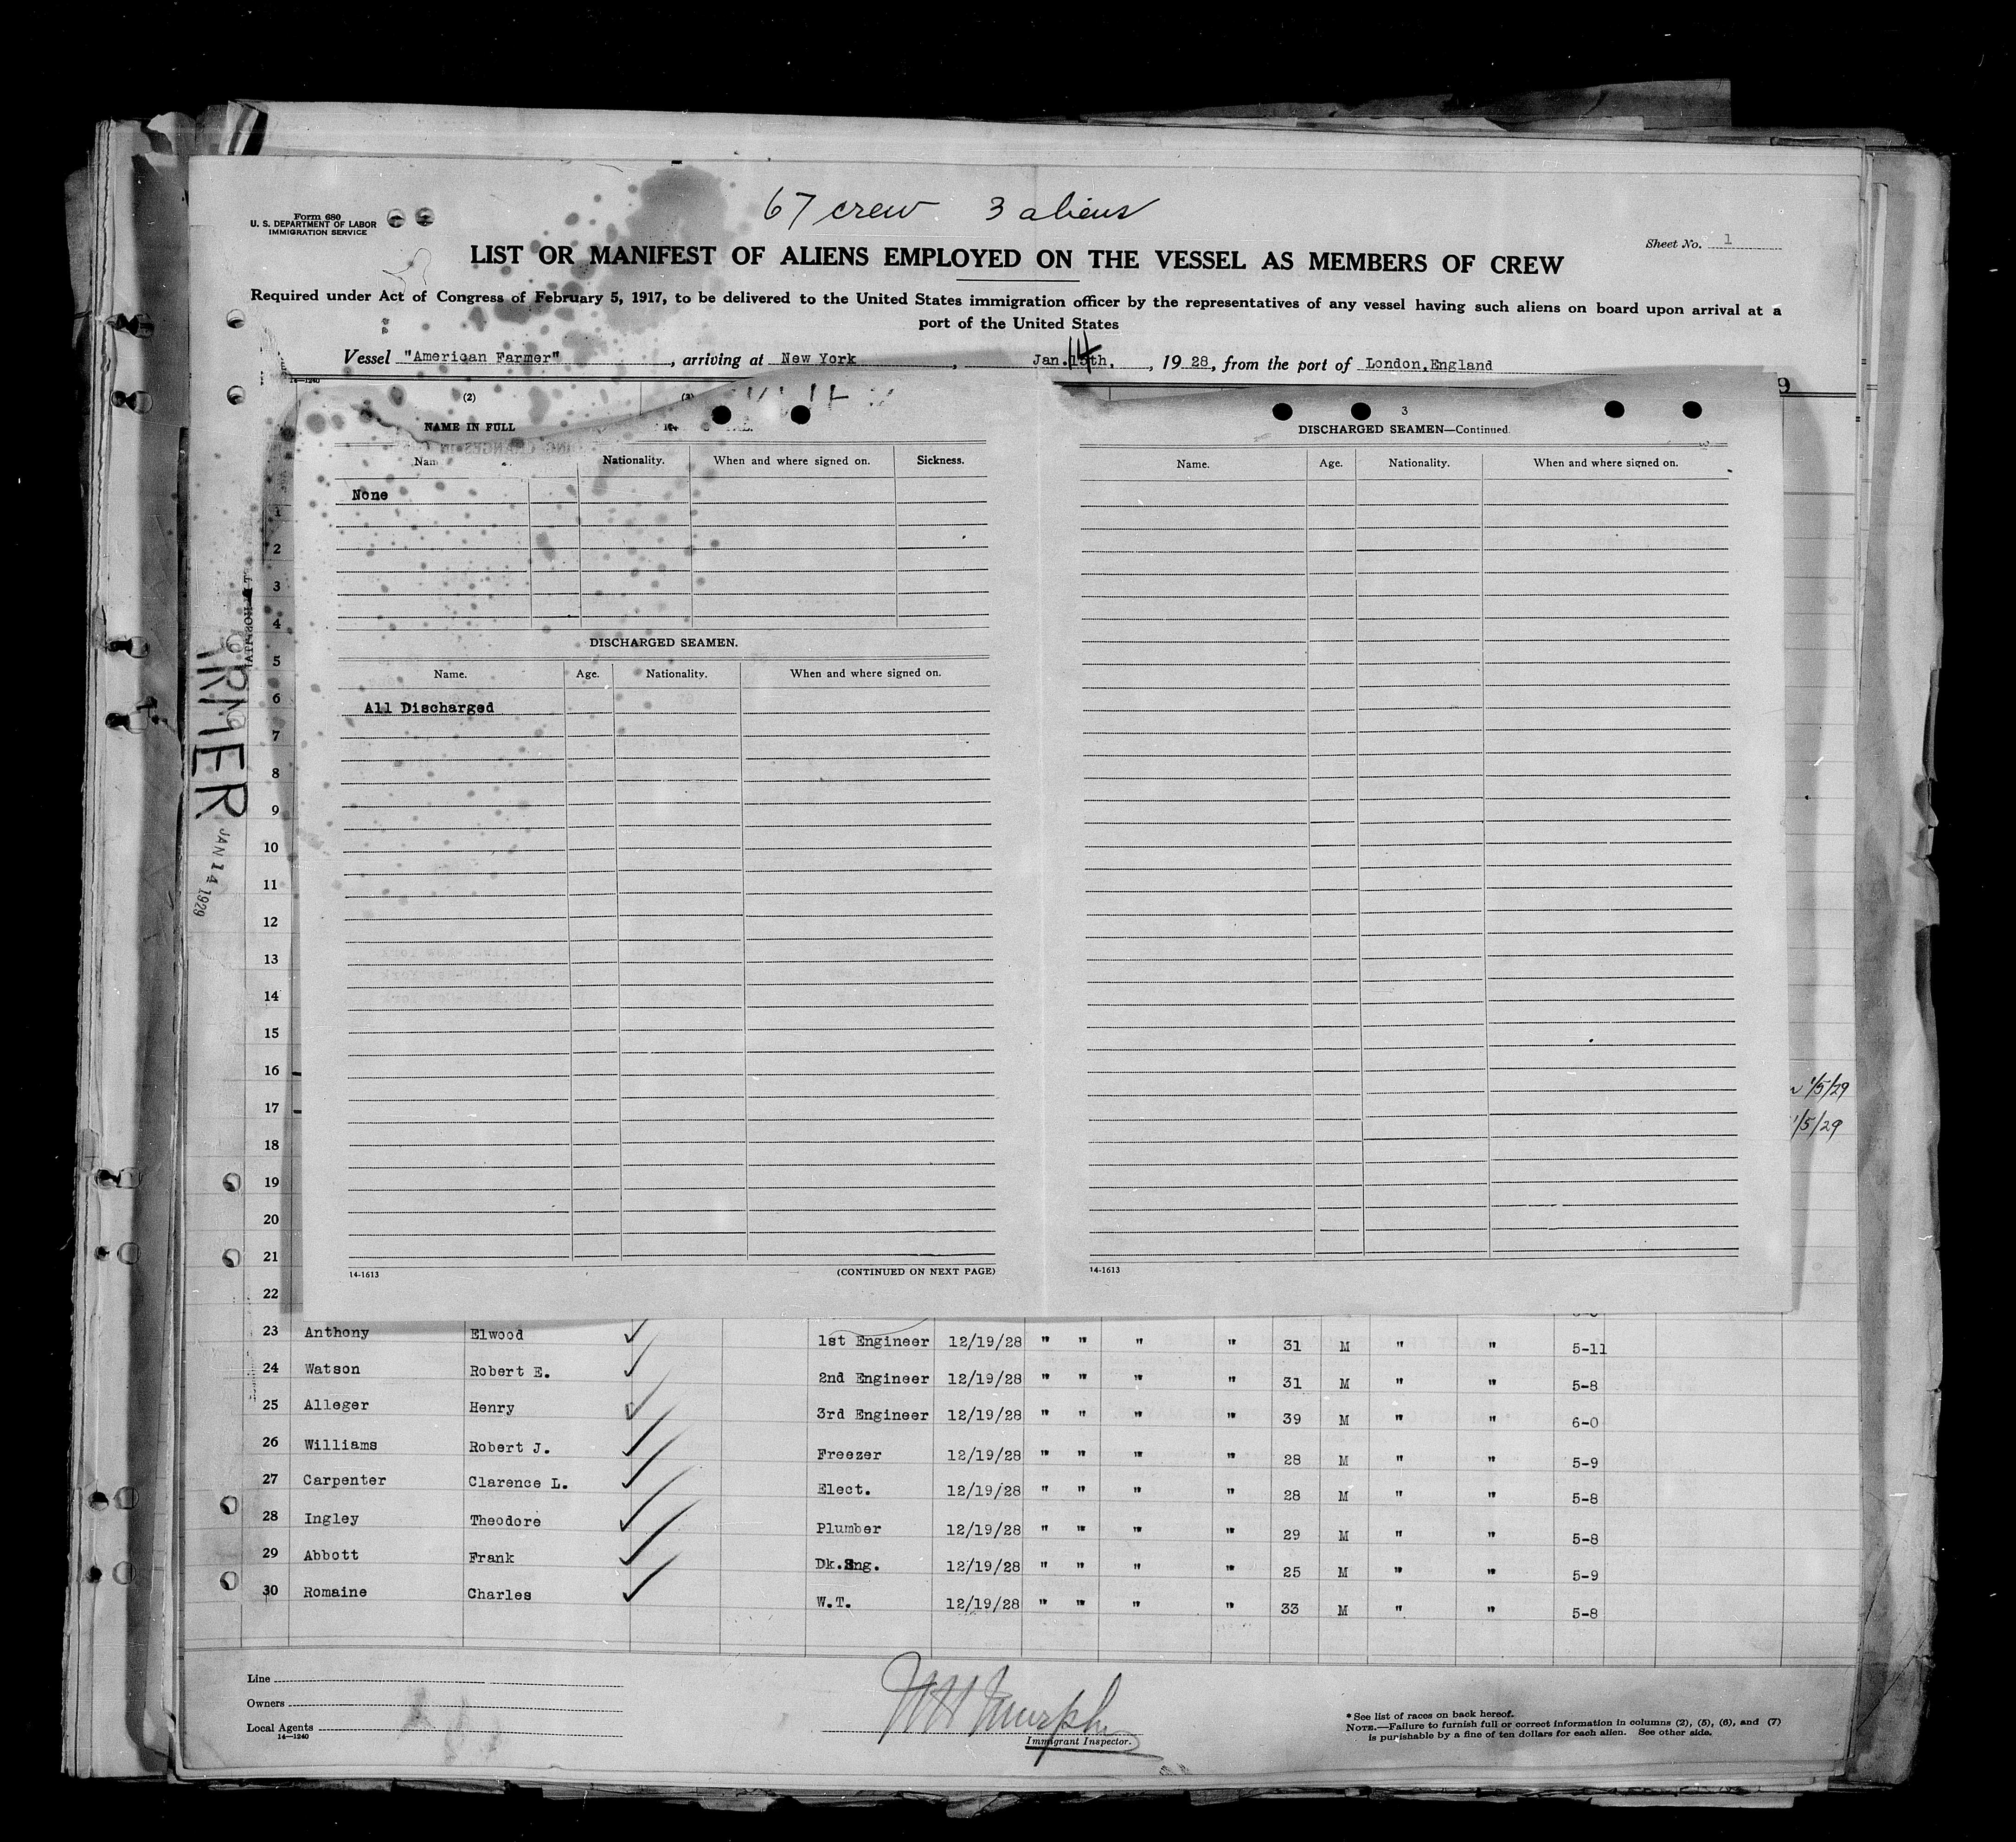 67 crew 3 aliens
Form 680
U. S. DEPARTMENT OF LABOR
IMMIGRATION SERVICE
Sheet No. 1
LIST OR MANIFEST OF ALIENS EMPLOYED ON THE VESSEL AS MEMBERS OF CREW
Required under Act of Congress of February 5, 1917, to be delivered to the United States immigration officer by the representatives of any vessel having such aliens on board upon arrival at a
port of the United States
Vessel "American Farmer", arriving at New York, Jan. 14th., 1928, from the port of London, England
14—1240
(2)
NAME IN FULL
Nationality. When and where signed on. Sickness.
None
DISCHARGED SEAMEN.
Name. Age. Nationality. When and where signed on.
All Discharged
14-1613
(CONTINUED ON NEXT PAGE)
3
DISCHARGED SEAMEN—Continued.
Name. Age. Nationality. When and where signed on.
14-1613
1
2
3
4
5
6
7
8
9
10
11
12
13
14
15
16
17
18
19
20
21
22
ARMER
JAN 14 1929
1/5/29
1/5/29
23 Anthony Elwood ✓ 1st Engineer 12/19/28 " " " " 31 M " " 5-11
24 Watson Robert E. ✓ 2nd Engineer 12/19/28 " " " " 31 M " " 5-8
25 Alleger Henry ✓ 3rd Engineer 12/19/28 " " " " 39 M " " 6-0
26 Williams Robert J. ✓ Freezer 12/19/28 " " " " 28 M " " 5-9
27 Carpenter Clarence L. ✓ Elect. 12/19/28 " " " " 28 M " " 5-8
28 Ingley Theodore ✓ Plumber 12/19/28 " " " " 29 M " " 5-8
29 Abbott Frank ✓ Dk.Eng. 12/19/28 " " " " 25 M " " 5-9
30 Romaine Charles ✓ W.T. 12/19/28 " " " " 33 M " " 5-8
Line
Owners
Local Agents
14—1240
Murphy
Immigrant Inspector.
* See list of races on back hereof.
NOTE.—Failure to furnish full or correct information in columns (2), (5), (6), and (7)
is punishable by a fine of ten dollars for each alien. See other side.